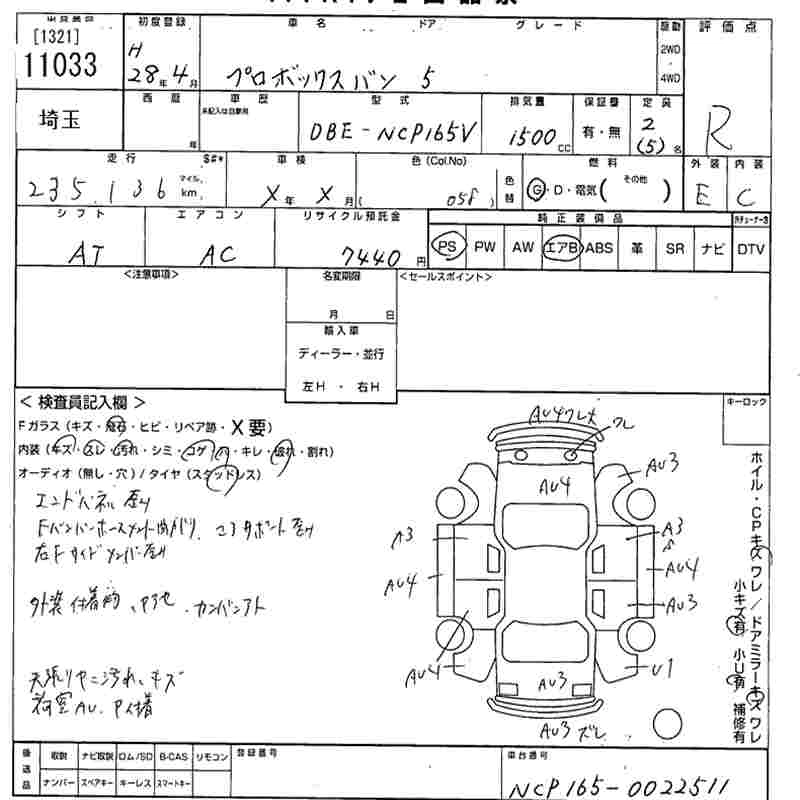 [1321]
11033
初度登録
H
28年4月
車名 ドア グレード
プロボックスバン 5
駆動
2WD
・
4WD
評価点
R
埼玉
西暦
年
車歴
未記入は自家用
型式
DBE-NCP165V
排気量
1500cc
保証書
有・無
定員
2
(5)名
走行 S#*
235,136 マイル, km,
車検
X年X月
色(Col.No)
(058)
色替
燃料
G・D・電気(その他)
外装
E
内装
C
シフト
AT
エアコン
AC
リサイクル預託金
7440円
純正装備品
PS PW AW エアB ABS 革 SR ナビ DTV
<注意事項>
名変期限
月 日
輸入車
ディーラー・並行
左H・右H
<セールスポイント>
<検査員記入欄>
キーロック
Fガラス(キズ・飛石・ヒビ・リペア跡・X要)
内装(キズ・スレ・汚れ・シミ・コゲ・穴・キレ・破れ・割れ)
オーディオ(無し・穴)/タイヤ(スタッドレス)
エンドパネル歪り
コアサポート歪り
右Fサイドメンバー歪り
外装 付着物、ヤケ色、カンバンアト
天張りヤニ汚れ、キズ
荷室AU、P付着
AU4ワレ大
ワレ
AU4
AU3
A3
A3
AU4
AU4
AU3
AU4
U1
AU3
AU3ズレ
ホイル・CPキズワレ/ドアミラーキズワレ
小キズ有 小U有 補修有
後送品
取説 ナビ取説 ロム/SD B-CAS リモコン
ナンバー スペアキー キーレス スマートキー
登録番号
車台番号
NCP165-0022511